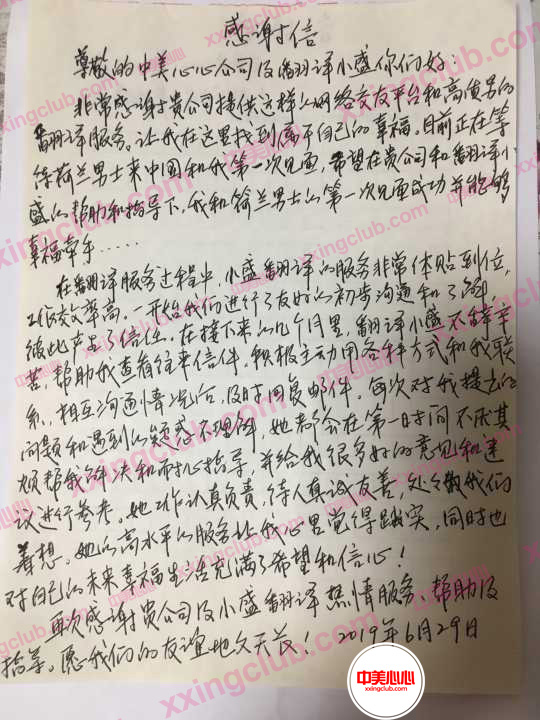 感谢信
尊敬的中美心心公司及翻译小盛你们好:
非常感谢贵公司提供这样的网络交友平台和高质量的
翻译服务,让我在这里找到属于自己的幸福。目前正在等
待荷兰男士来中国和我第一次见面,希望在贵公司和翻译小
盛的帮助和指导下,我和荷兰男士的第一次见面成功并能够
幸福牵手……
在翻译服务过程中,小盛翻译的服务非常体贴到位,
工作效率高。一开始我们进行了友好的初步沟通和了解
彼此产生了信任。在接下来的几个月里,翻译小盛不辞辛
苦,帮助我查看往来信件,积极主动用各种方式和我联
系,相互沟通情况后,及时回复邮件。每次对我提出的
问题和遇到的疑惑不理解,她都会在第一时间不厌其
烦帮我解决和加以指导,并给我很多好的意见和建
议进行参考。她工作认真负责,待人真诚友善,处处替我们
着想。她的高水平的服务让我心里觉得踏实,同时也
对自己的未来幸福生活充满了希望和信心!
再次感谢贵公司及小盛翻译热情服务、帮助及
指导。愿我们的友谊地久天长! 2019年6月29日
中美心心
xxingclub.com